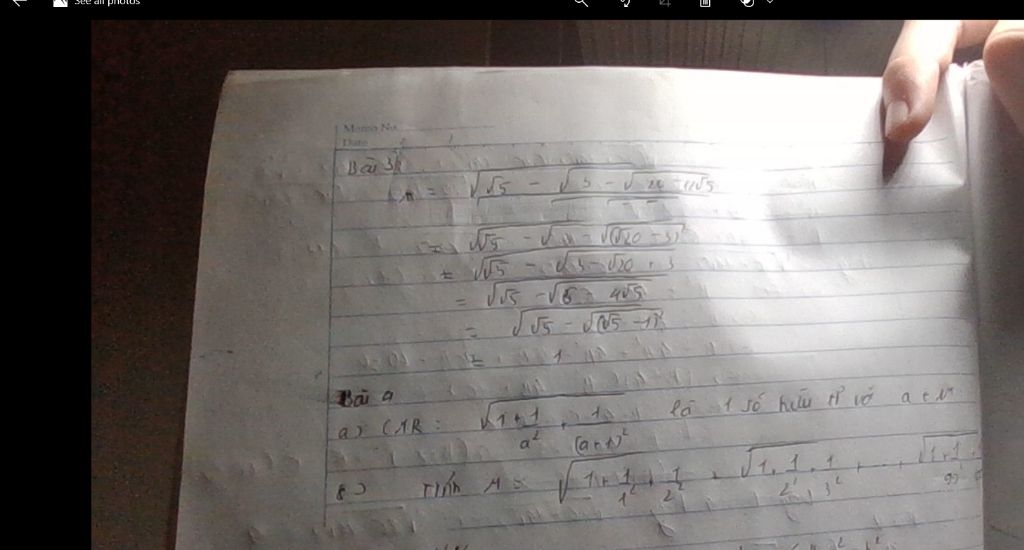 See all photos
Memo No.
Date
Bài 3
A = √(√5 - √(3 - √(29 - 12√5)))
= √(√5 - √(3 - √((√20 - 3)²)))
= √(√5 - √(3 - √20 + 3))
= √(√5 - √(6 - 4√5))
= √(√5 - √((√5 - 1)²))
= 1
Bài 9
a) CMR: √(1 + 1/a² + 1/(a+1)²) là 1 số hữu tỉ với a ∈ N*
b) Tính A = √(1 + 1/1² + 1/2²) + √(1 + 1/2² + 1/3²) + ... + √(1 + 1/99²